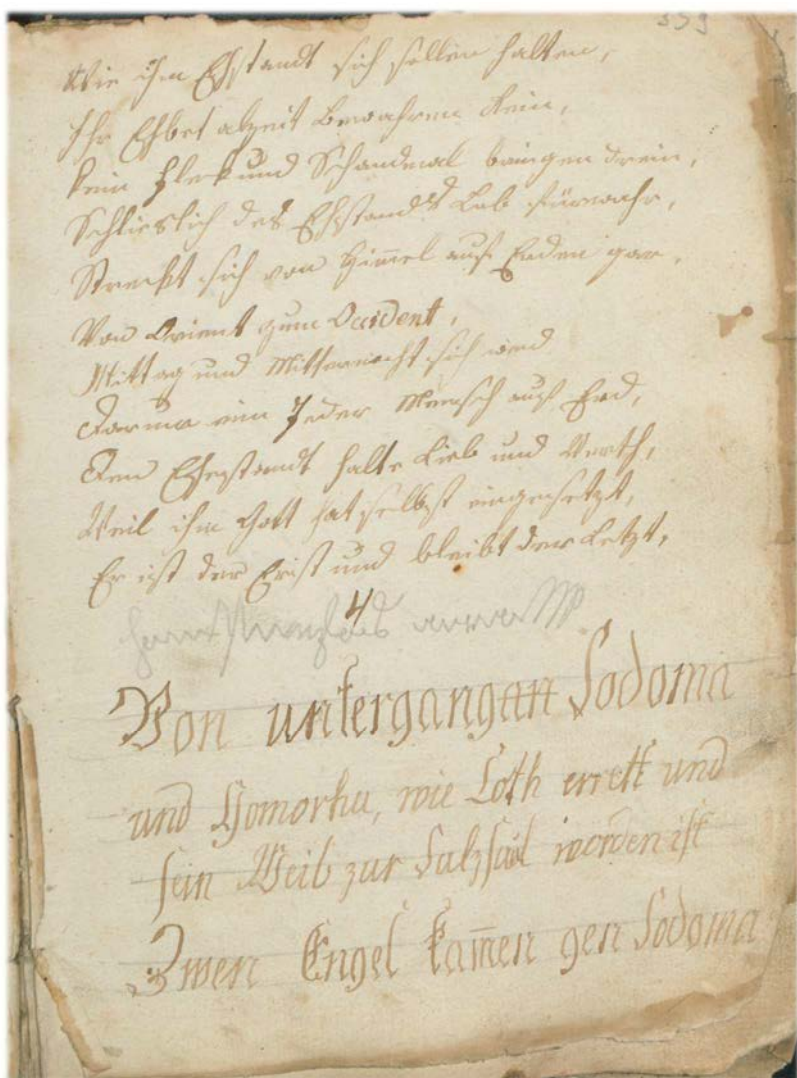 339
Wie ihn Ehstandt sich sollen halten,
Ihr Ehbet alzeit bewahren Rein,
kein Fleck und Schandmal bringen drein,
Schlieslich des Ehstands Lob fürwahr,
Streckt sich von Him̄el auf Erden gar,
Von Orient zum Occident,
Mittag und Mitternacht sich wend
Darum ein Jeder Mensch auf Erd,
Den Ehestandt halte Lieb und Werth,
Weil ihn Gott hat selbst eingesetzt,
Er ist der Erist und bleibt der Letzt,
4
Von untergangan Sodoma
und Gomorha, wie Loth errett und
sein Weib zur Salzsäul worden ist
Zwen Engel kam̄en gen Sodoma